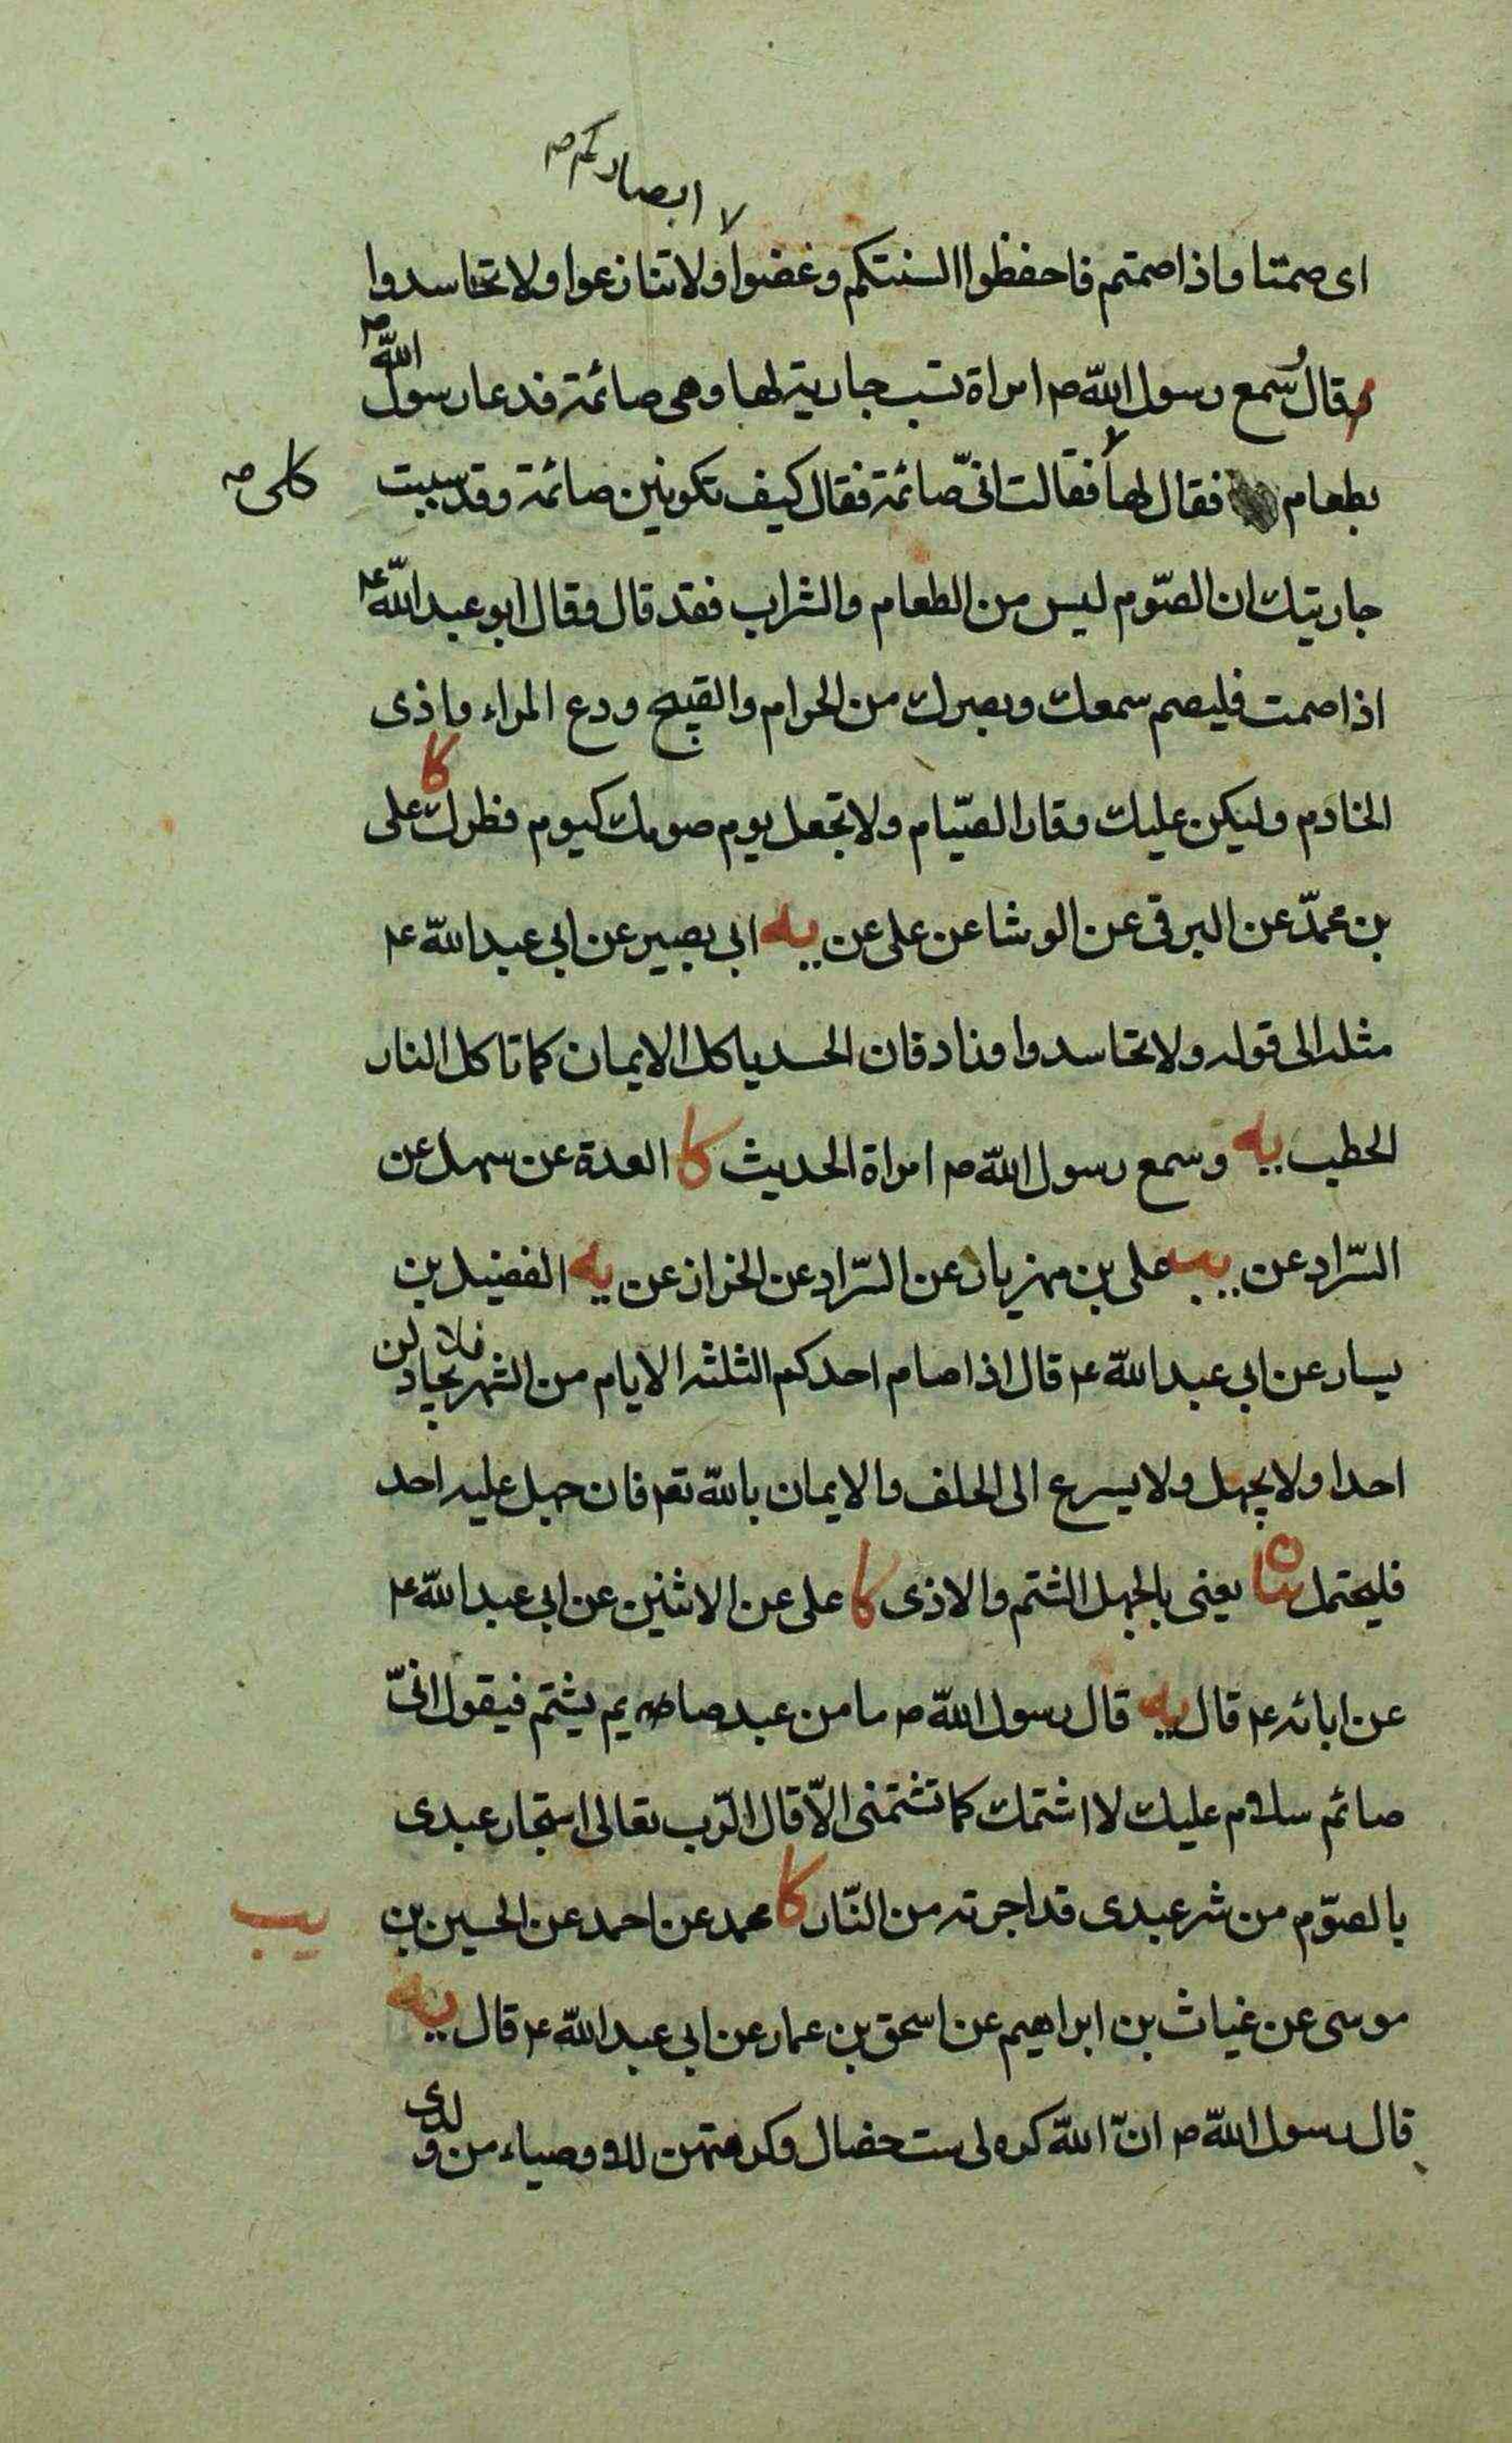 ابصاركم ص
اى صمتا واذا صمتم فاحفظوا السنتكم وغضوا ولا تنازعوا ولا تحاسدوا
م قال سمع رسول الله ص امراة تسب جارية لها وهى صائمة فدعا رسول الله ص
بطعام فقال لها فقالت انىّ صائمة فقال كيف تكونين صائمة وقد سببت
كلى ص
جاريتك ان الصّوم ليس من الطعام والشراب فقد قال وقال ابو عبد الله ع
اذا صمت فليصم سمعك وبصرك من الحرام والقبيح ودع المراء واذى
الخادم وليكن عليك وقار الصّيام ولا تجعل يوم صومك كيوم فطرك كا على
بن محمّد عن البرقى عن الوشا عن على عن يه ابى بصير عن ابى عبد الله ع
مثله الى قوله ولا تحاسدوا وزاد فان الحسد ياكل الايمان كما تاكل النار
الحطب يه وسمع رسول الله ص امراة الحديث كا العدة عن سهل عن
السّراد عن يب على بن مهزيار عن السّراد عن الخزاز عن يه الفضيل بن
يسار عن ابى عبد الله ع قال اذا صام احدكم الثلثة الايام من الشهر فلا يجادلن
احدا ولا يجهل ولا يسرع الى الحلف والايمان بالله تعم فان جهل عليه احد
فليحتمل ن يعنى بالجهل الشتم والاذى كا على عن الاثنين عن ابى عبد الله ع
عن ابائه ع قال يه قال رسول الله ص ما من عبد صايم يشتم فيقول انىّ
صائم سلام عليك لا اشتمك كما تشتمنى الاّ قال الرّب تعالى استجار عبدى
بالصّوم من شر عبدى قد اجرته من النّار كا محمد عن احمد عن الحسين بن
يب
موسى عن غياث بن ابراهيم عن اسحق بن عمار عن ابى عبد الله ع قال يه
قال رسول الله ص انّ الله كره لى ست خصال وكرهتهن للاوصياء من ولدى